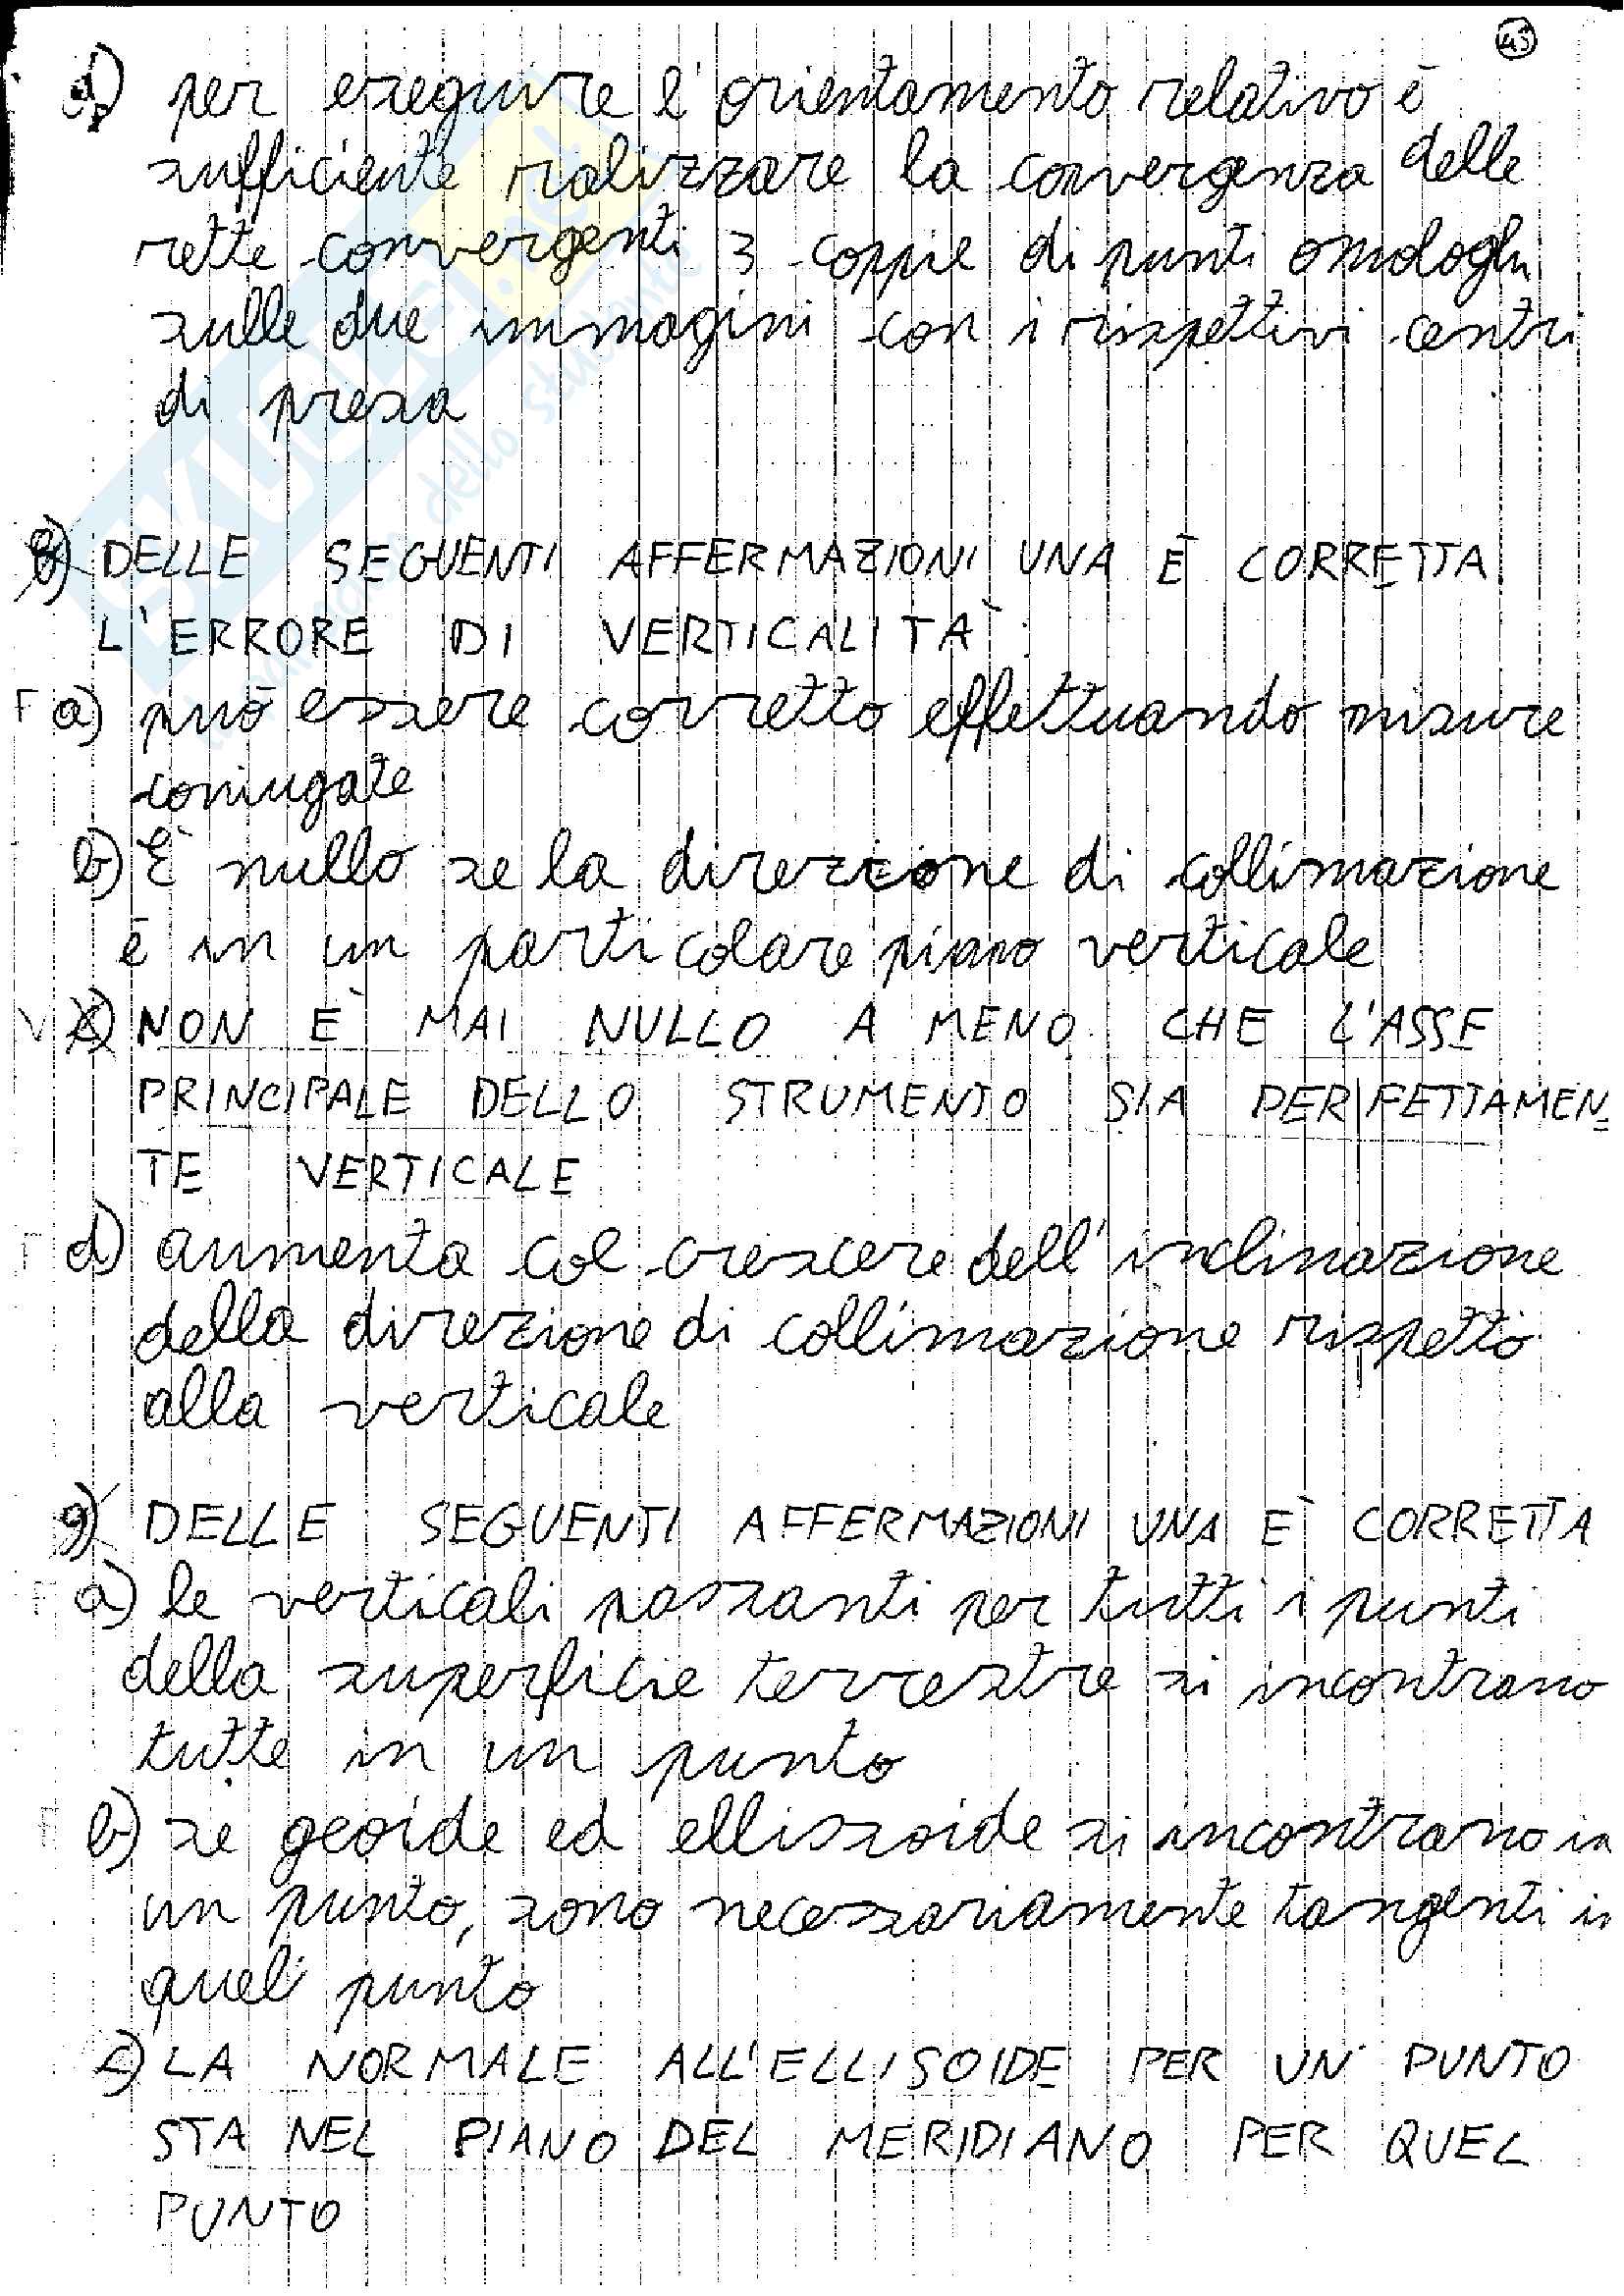 45
d) per eseguire l'orientamento relativo è
sufficiente rializzare la convergenza delle
rette convergenti 3 coppie di punti omologhi
sulle due immagini con i rispettivi centri
di presa
8) DELLE SEGUENTI AFFERMAZIONI UNA È CORRETTA
L'ERRORE DI VERTICALITÀ:
F a) può essere corretto effettuando misure
coniugate
b) È nullo se la direzione di collimazione
è in un particolare piano verticale
V c) NON È MAI NULLO A MENO CHE L'ASSE
PRINCIPALE DELLO STRUMENTO SIA PERFETTAMEN
TE VERTICALE
F d) aumenta col crescere dell'inclinazione
della direzione di collimazione rispetto
alla verticale
9) DELLE SEGUENTI AFFERMAZIONI UNA È CORRETTA
F a) le verticali passanti per tutti i punti
della superficie terrestre si incontrano
tutte in un punto
F b) se geoide ed ellissoide si incontrano in
un punto, sono necessariamente tangenti in
quel punto
c) LA NORMALE ALL'ELLISOIDE PER UN PUNTO
STA NEL PIANO DEL MERIDIANO PER QUEL
PUNTO